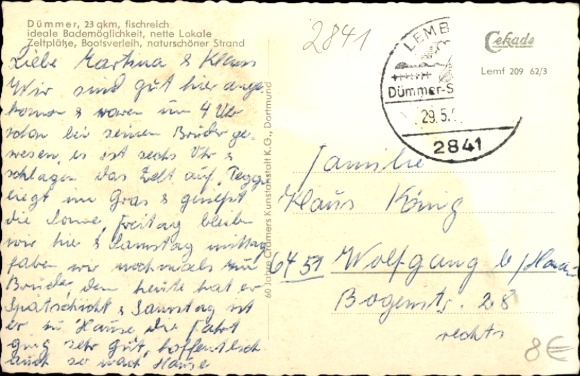 Dümmer, 23 qkm, fischreich
ideale Bademöglichkeit, nette Lokale
Zeltplätze, Bootsverleih, naturschöner Strand
Liebe Martina & Klaus
Wir sind gut hier ange-
komen & waren um 4 Uhr
schon bei seinem Bruder ge-
wesen, es ist sechs Uhr &
schlagen das Zelt auf,
liegt im Gras & genießt
die Sonne, Freitag bleiben
wir hier & Samstag mittag
fahren wir nochmals zum
Bruder, denn heute hat er
Spätschicht & Samstag ist
er zu Hause die Fahrt
ging sehr gut, hoffentlich
auch so nach Hause
60 Jahre Cramers Kunstanstalt K.G., Dortmund
2841
LEMB
Dümmer-S
29.5.
2841
Cekade
Lemf 209 62/3
Familie
Klaus König
6451 Wolfgang b/Hanau
Bogenstr. 28
rechts
8€